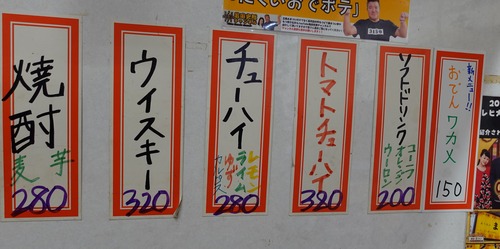 焼酎
麦 芋
280
ウイスキー
320
チューハイ
レモン
ライム
ゆず
カルピス
280
トマトチューハイ
320
ソフトドリンク
コーラ
ウーロン
200
新メニュー!!
おでん
ワカメ
150